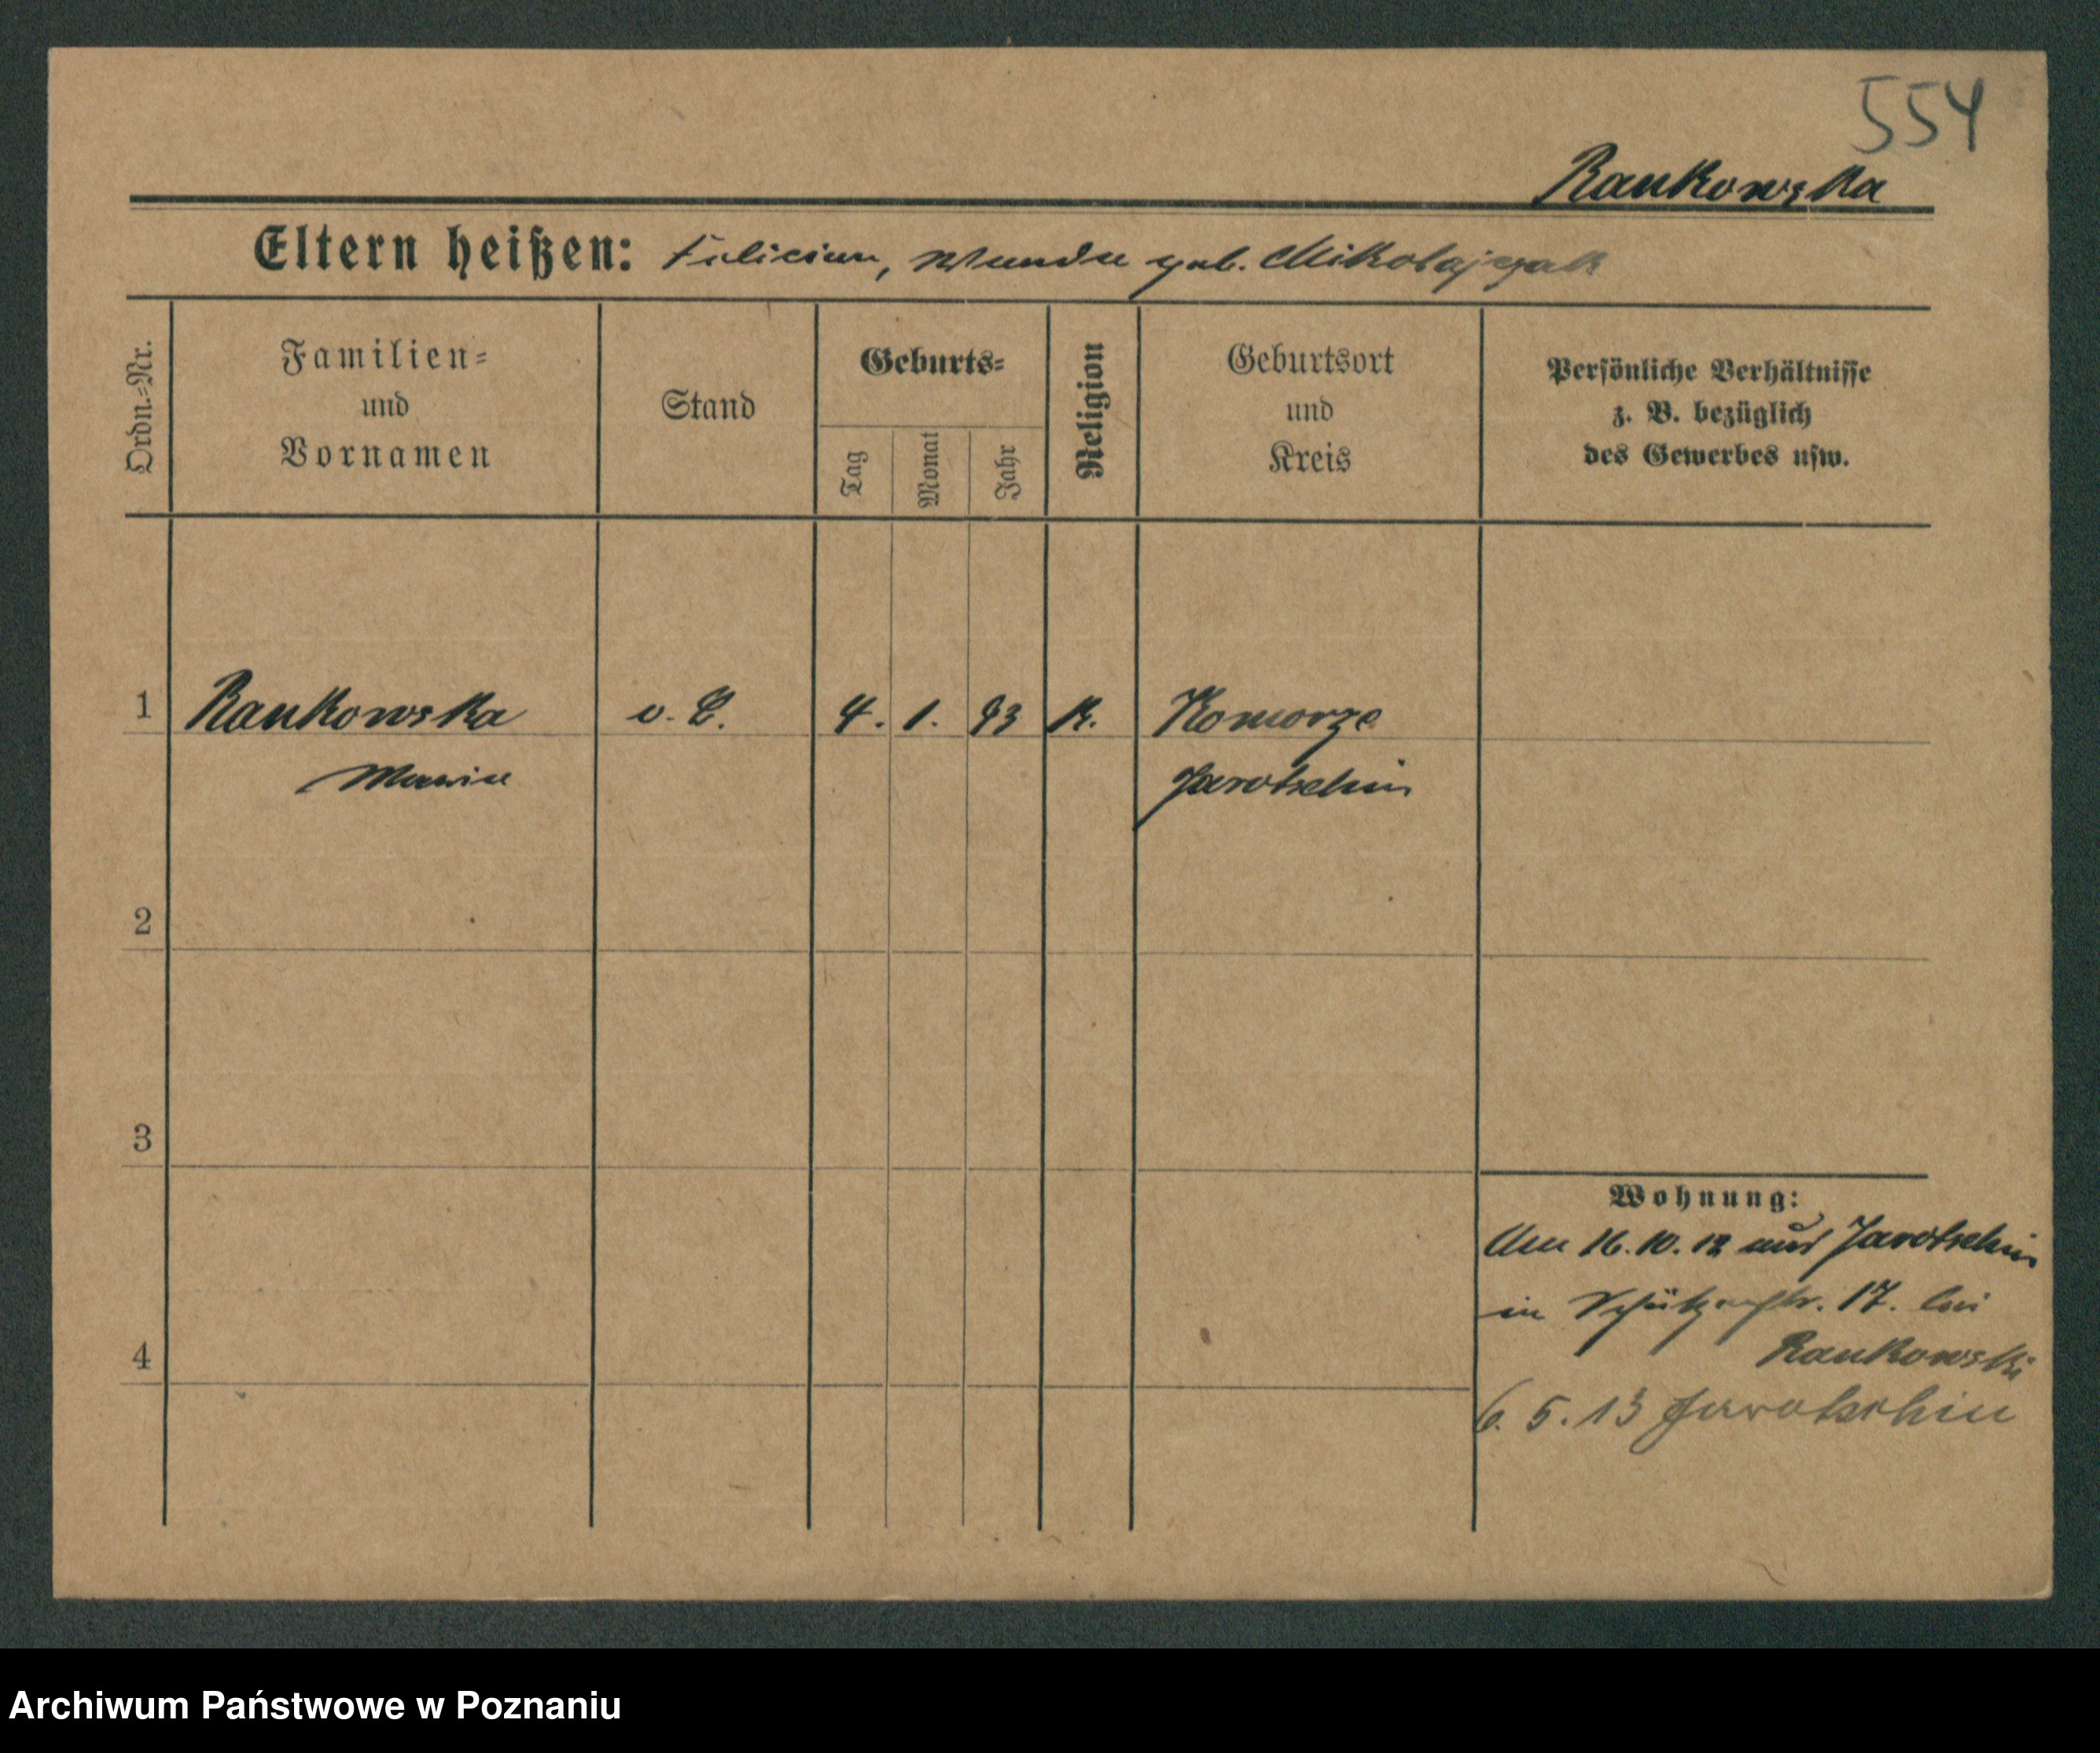 554
Rankowska
Eltern heißen: Felician, Wanda geb. Mikołajczak
Ordn.-Nr.
Familien-
und
Vornamen
Stand
Geburts-
Tag
Monat
Jahr
Religion
Geburtsort
und
Kreis
Persönliche Verhältnisse
z. B. bezüglich
des Gewerbes usw.
1 Rankowska o. B. 4. 1. 93 K. Komorze
Maria Jarotschin
2
3
4
Wohnung:
16.10.12 aus Jarotschin
in Schützenstr. 17. bei
Rankowski
6. 5. 13 Jarotschin
Archiwum Państwowe w Poznaniu